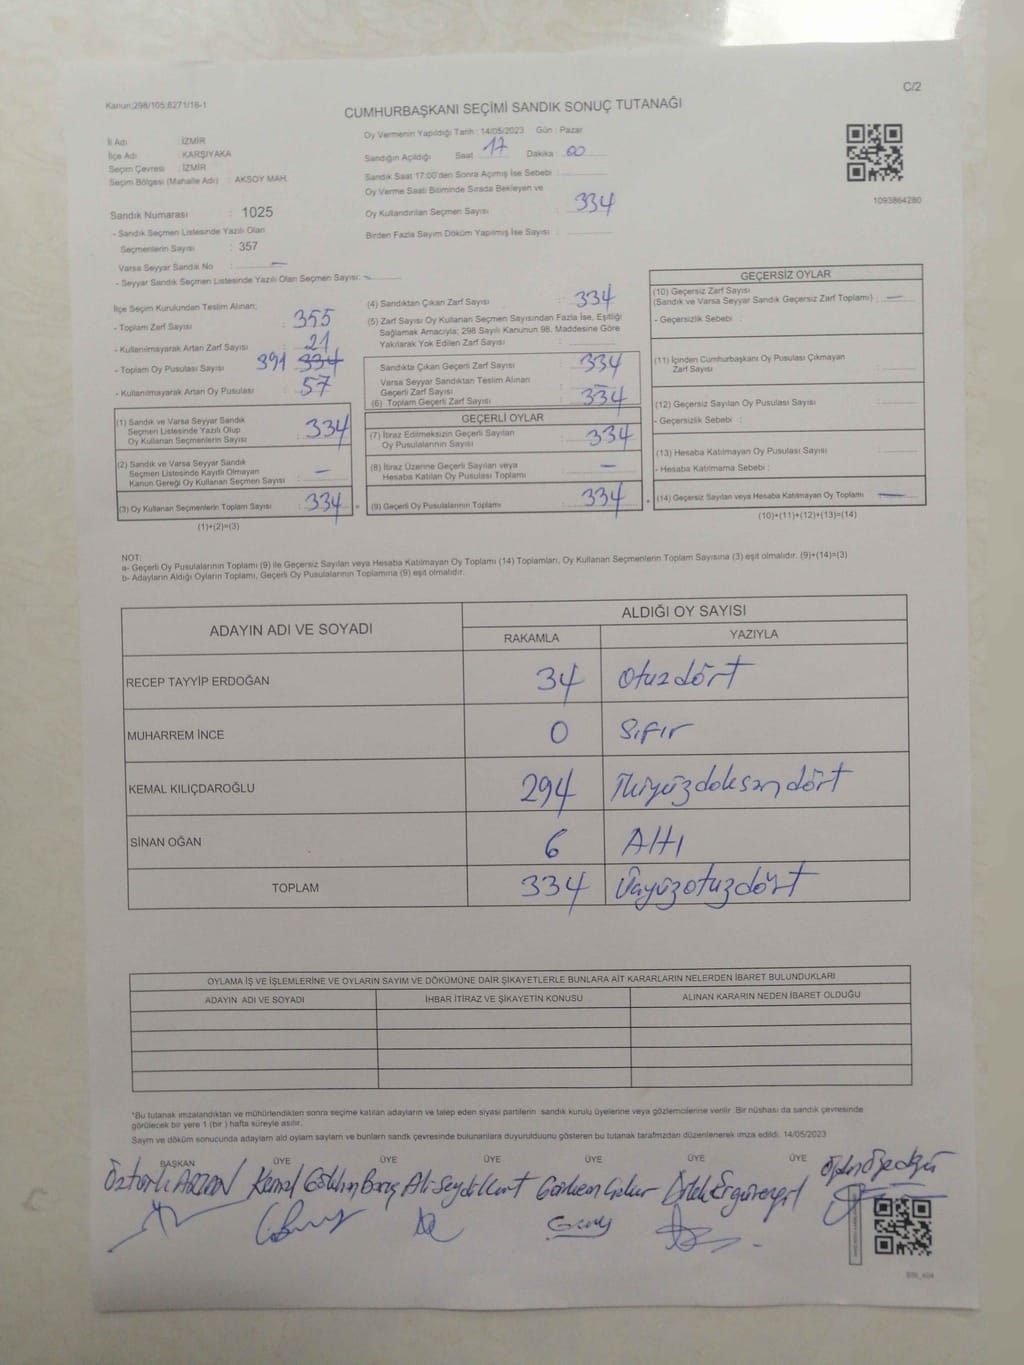 Kanun:298/105;6271/16-1
C/2
CUMHURBAŞKANI SEÇİMİ SANDIK SONUÇ TUTANAĞI
İl Adı : İZMİR
İlçe Adı : KARŞIYAKA
Seçim Çevresi : İZMİR
Seçim Bölgesi (Mahalle Adı) : AKSOY MAH.
Sandık Numarası : 1025
- Sandık Seçmen Listesinde Yazılı Olan
Seçmenlerin Sayısı : 357
Varsa Seyyar Sandık No : —
- Seyyar Sandık Seçmen Listesinde Yazılı Olan Seçmen Sayısı: -
Oy Vermenin Yapıldığı Tarih : 14/05/2023 Gün : Pazar
Sandığın Açıldığı Saat : 17 Dakika : 00
Sandık Saat 17:00'den Sonra Açımış İse Sebebi :
Oy Verme Saati Bitiminde Sırada Bekleyen ve
Oy Kullandırılan Seçmen Sayısı : 334
Birden Fazla Sayım Döküm Yapılmış İse Sayısı :
1093864280
İlçe Seçim Kurulundan Teslim Alınan;
- Toplam Zarf Sayısı : 355
- Kullanılmayarak Artan Zarf Sayısı : 21
- Toplam Oy Pusulası Sayısı : 391 334
- Kullanılmayarak Artan Oy Pusulası : 57
(1) Sandık ve Varsa Seyyar Sandık
Seçmen Listesinde Yazılı Olup
Oy Kullanan Seçmenlerin Sayısı : 334
(2) Sandık ve Varsa Seyyar Sandık
Seçmen Listesinde Kayıtlı Olmayan
Kanun Gereği Oy Kullanan Seçmen Sayısı : —
(3) Oy Kullanan Seçmenlerin Toplam Sayısı : 334 =
(1)+(2)=(3)
(4) Sandıktan Çıkan Zarf Sayısı : 334
(5) Zarf Sayısı Oy Kullanan Seçmen Sayısından Fazla İse, Eşitliği
Sağlamak Amacıyla; 298 Sayılı Kanunun 98. Maddesine Göre
Yakılarak Yok Edilen Zarf Sayısı :
Sandıkta Çıkan Geçerli Zarf Sayısı : 334
Varsa Seyyar Sandıktan Teslim Alınan
Geçerli Zarf Sayısı : —
(6) Toplam Geçerli Zarf Sayısı : 334
GEÇERLİ OYLAR
(7) İtiraz Edilmeksizin Geçerli Sayılan
Oy Pusulalarının Sayısı : 334
(8) İtiraz Üzerine Geçerli Sayılan veya
Hesaba Katılan Oy Pusulası Toplamı : —
(9) Geçerli Oy Pusulalarının Toplamı : 334 +
GEÇERSİZ OYLAR
(10) Geçersiz Zarf Sayısı
(Sandık ve Varsa Seyyar Sandık Geçersiz Zarf Toplamı) : —
- Geçersizlik Sebebi :
(11) İçinden Cumhurbaşkanı Oy Pusulası Çıkmayan
Zarf Sayısı :
(12) Geçersiz Sayılan Oy Pusulası Sayısı :
- Geçersizlik Sebebi :
(13) Hesaba Katılmayan Oy Pusulası Sayısı :
- Hesaba Katılmama Sebebi :
(14) Geçersiz Sayılan veya Hesaba Katılmayan Oy Toplamı : —
(10)+(11)+(12)+(13)=(14)
NOT:
a- Geçerli Oy Pusulalarının Toplamı (9) ile Geçersiz Sayılan veya Hesaba Katılmayan Oy Toplamı (14) Toplamları, Oy Kullanan Seçmenlerin Toplam Sayısına (3) eşit olmalıdır. (9)+(14)=(3)
b- Adayların Aldığı Oyların Toplamı, Geçerli Oy Pusulalarının Toplamına (9) eşit olmalıdır.
ADAYIN ADI VE SOYADI
ALDIĞI OY SAYISI
RAKAMLA YAZIYLA
RECEP TAYYİP ERDOĞAN 34 Otuzdört
MUHARREM İNCE 0 Sıfır
KEMAL KILIÇDAROĞLU 294 İkiyüzdoksandört
SİNAN OĞAN 6 Altı
TOPLAM 334 Üçyüzotuzdört
OYLAMA İŞ VE İŞLEMLERİNE VE OYLARIN SAYIM VE DÖKÜMÜNE DAİR ŞİKAYETLERLE BUNLARA AİT KARARLARIN NELERDEN İBARET BULUNDUKLARI
ADAYIN ADI VE SOYADI İHBAR İTİRAZ VE ŞİKAYETİN KONUSU ALINAN KARARIN NEDEN İBARET OLDUĞU
*Bu tutanak imzalandıktan ve mühürlendikten sonra seçime katılan adayların ve talep eden siyasi partilerin sandık kurulu üyelerine veya gözlemcilerine verilir .Bir nüshası da sandık çevresinde
görülecek bir yere 1 (bir ) hafta süreyle asılır.
Sayım ve döküm sonucunda adayların ald oyların sayların ve bunların sandk çevresinde bulunanlara duyurulduunu gösteren bu tutanak tarafmzdan düzenlenerek imza edildi. 14/05/2023
BAŞKAN ÜYE ÜYE ÜYE ÜYE ÜYE ÜYE
Kemal Gökhan Barış Ali Seydi Kurt